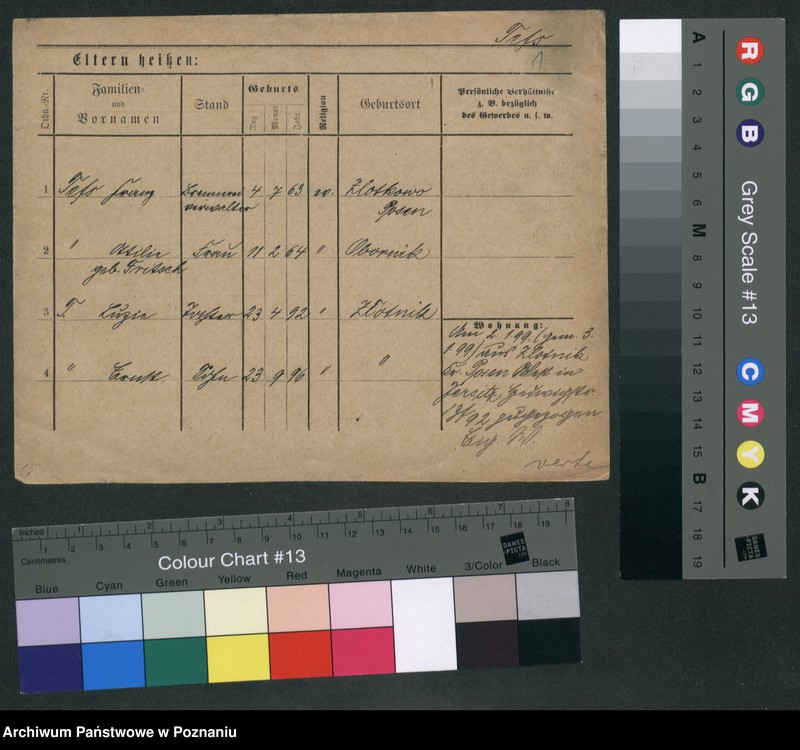 Tefs
1
Eltern heißen:
Ordn.-Nr.
Familien-
und
Vornamen
Stand
Geburts
Tag
Monat
Jahr
Religion
Geburtsort
Persönliche Verhältnisse
z. B. bezüglich
des Gewerbes u. s. w.
1 Tefs Franz 4 7 63 ev. Zlotkowo
verwalter Posen
2 " Ottilie Frau 11 2 64 " Obornik
geb. Fritsch
3 T Luzie Tochter 23 4 92 " Zlotnik
4 " Ernst Sohn 23 9 96 " "
Wohnung:
Am 2. 1 99 (gem. 3.
1 99) aus Zlotnik
Kr. Posen West in
Jersitz, Hedwigstr.
zugezogen
verte
A 1 2 3 4 5 6 M 8 9 10 11 12 13 14 15 B 17 18 19
R G B
Grey Scale #13
C M Y K
DANES
PICTA
.COM
Inches 1 2 3 4 5 6 7 8
Centimetres 1 2 3 4 5 6 7 8 9 10 11 12 13 14 15 16 17 18 19
Colour Chart #13
DANES
PICTA
.COM
Blue Cyan Green Yellow Red Magenta White 3/Color Black
Archiwum Państwowe w Poznaniu